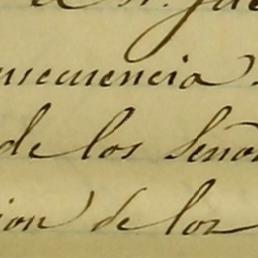 nsecuencia
de los Seño
ion de los